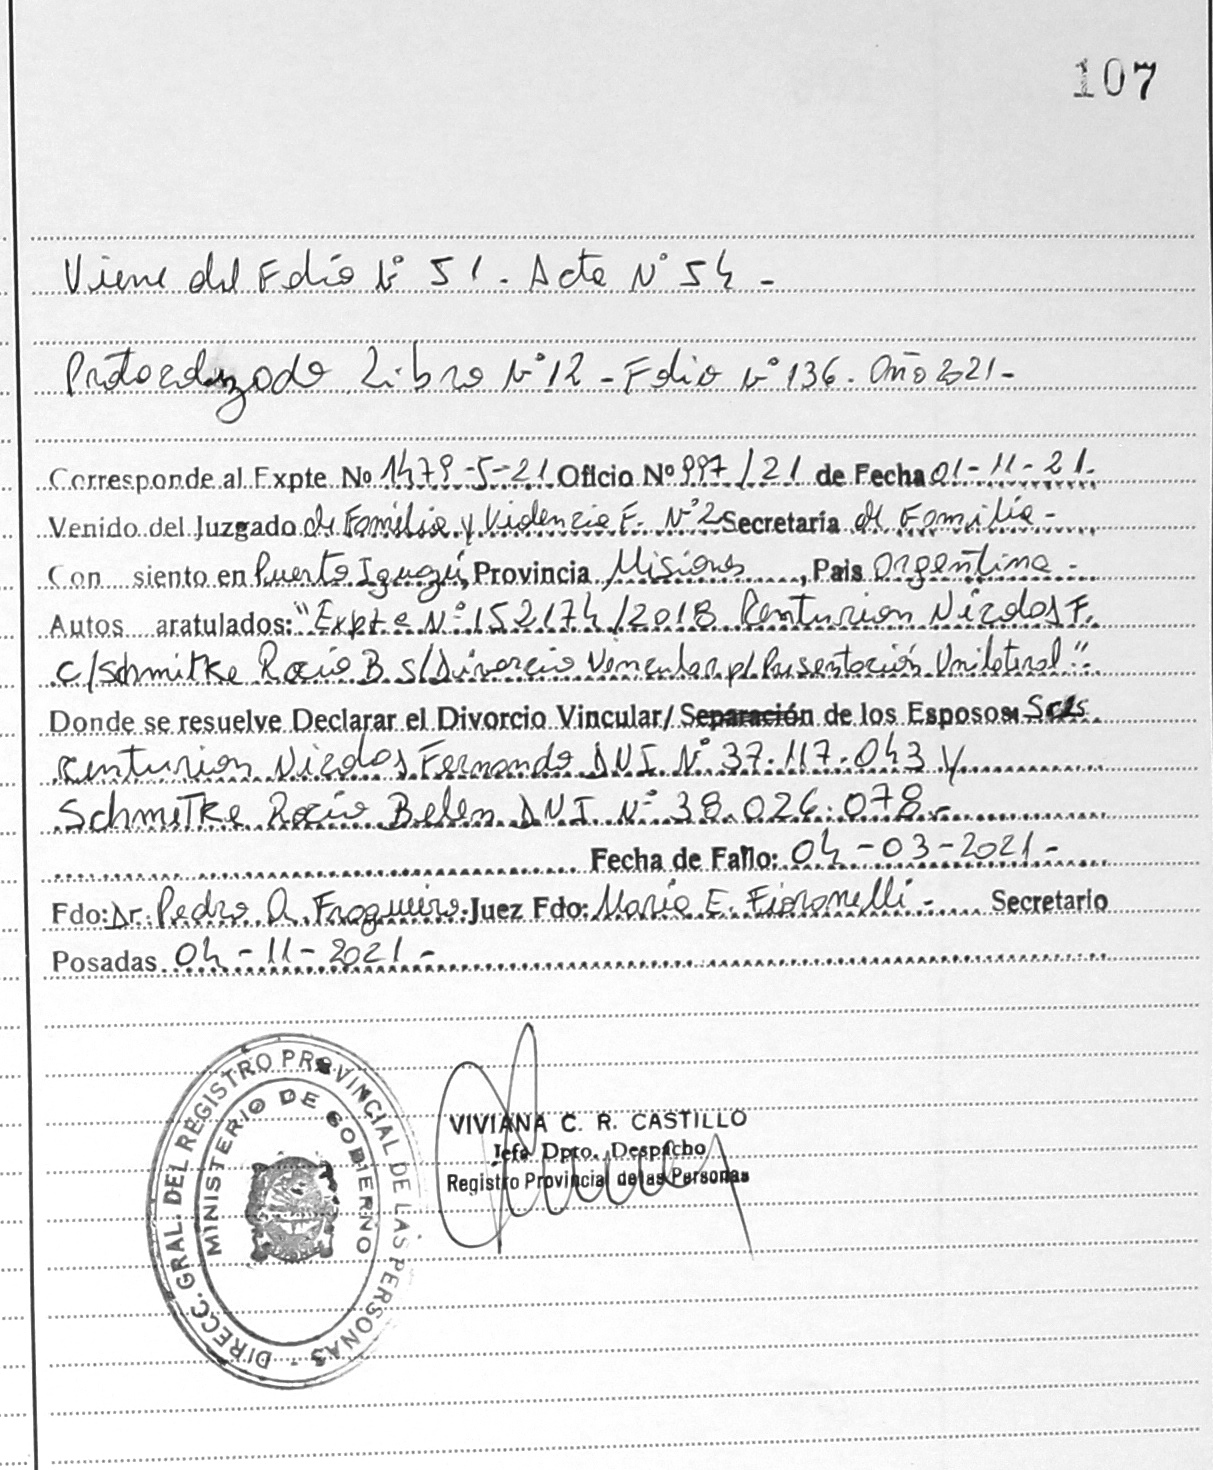 107
Viene del Folio N° 51 - Acta N° 54 -
Protocolizado Libro N° 12 - Folio N° 136 - Año 2021 -
Corresponde al Expte No 1479-5-21 Oficio Nº 997/21 de Fecha 01-11-21.
Venido del Juzgado de Familia y Violencia F. N° 2 Secretaria de Familia -
Con siento en Puerto Iguazú, Provincia Misiones, Pais Argentina -
Autos aratulados: "Expte N° 152174/2018 Centurion Nicolas F.
c/ Schmitke Rocio B s/ Divorcio Vincular p/ Presentación Unilateral"
Donde se resuelve Declarar el Divorcio Vincular/ Separación de los Esposos: Sres
Centurion Nicolas Fernando DNI N° 37.117.043 y
Schmitke Rocio Belen DNI N° 38.026.078 -
Fecha de Fallo: 04-03-2021 -
Fdo: Dr. Pedro A. Fragueiro. Juez Fdo: Maria E. Fioranelli - Secretario
Posadas 04-11-2021 -
DIRECC. GRAL. DEL REGISTRO PROVINCIAL DE LAS PERSONAS -
MINISTERIO DE GOBIERNO
VIVIANA C. R. CASTILLO
Jefa Dpto. Despacho
Registro Provincial de las Personas